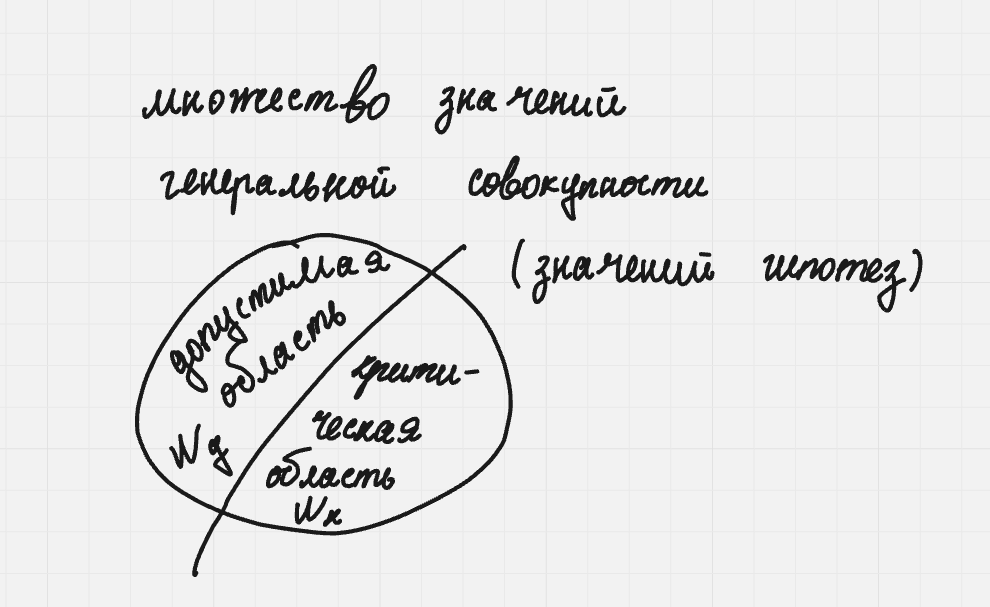 множество значений
генеральной совокупности
(значений гипотез)
допустимая
область
Wд
крити-
ческая
область
Wк